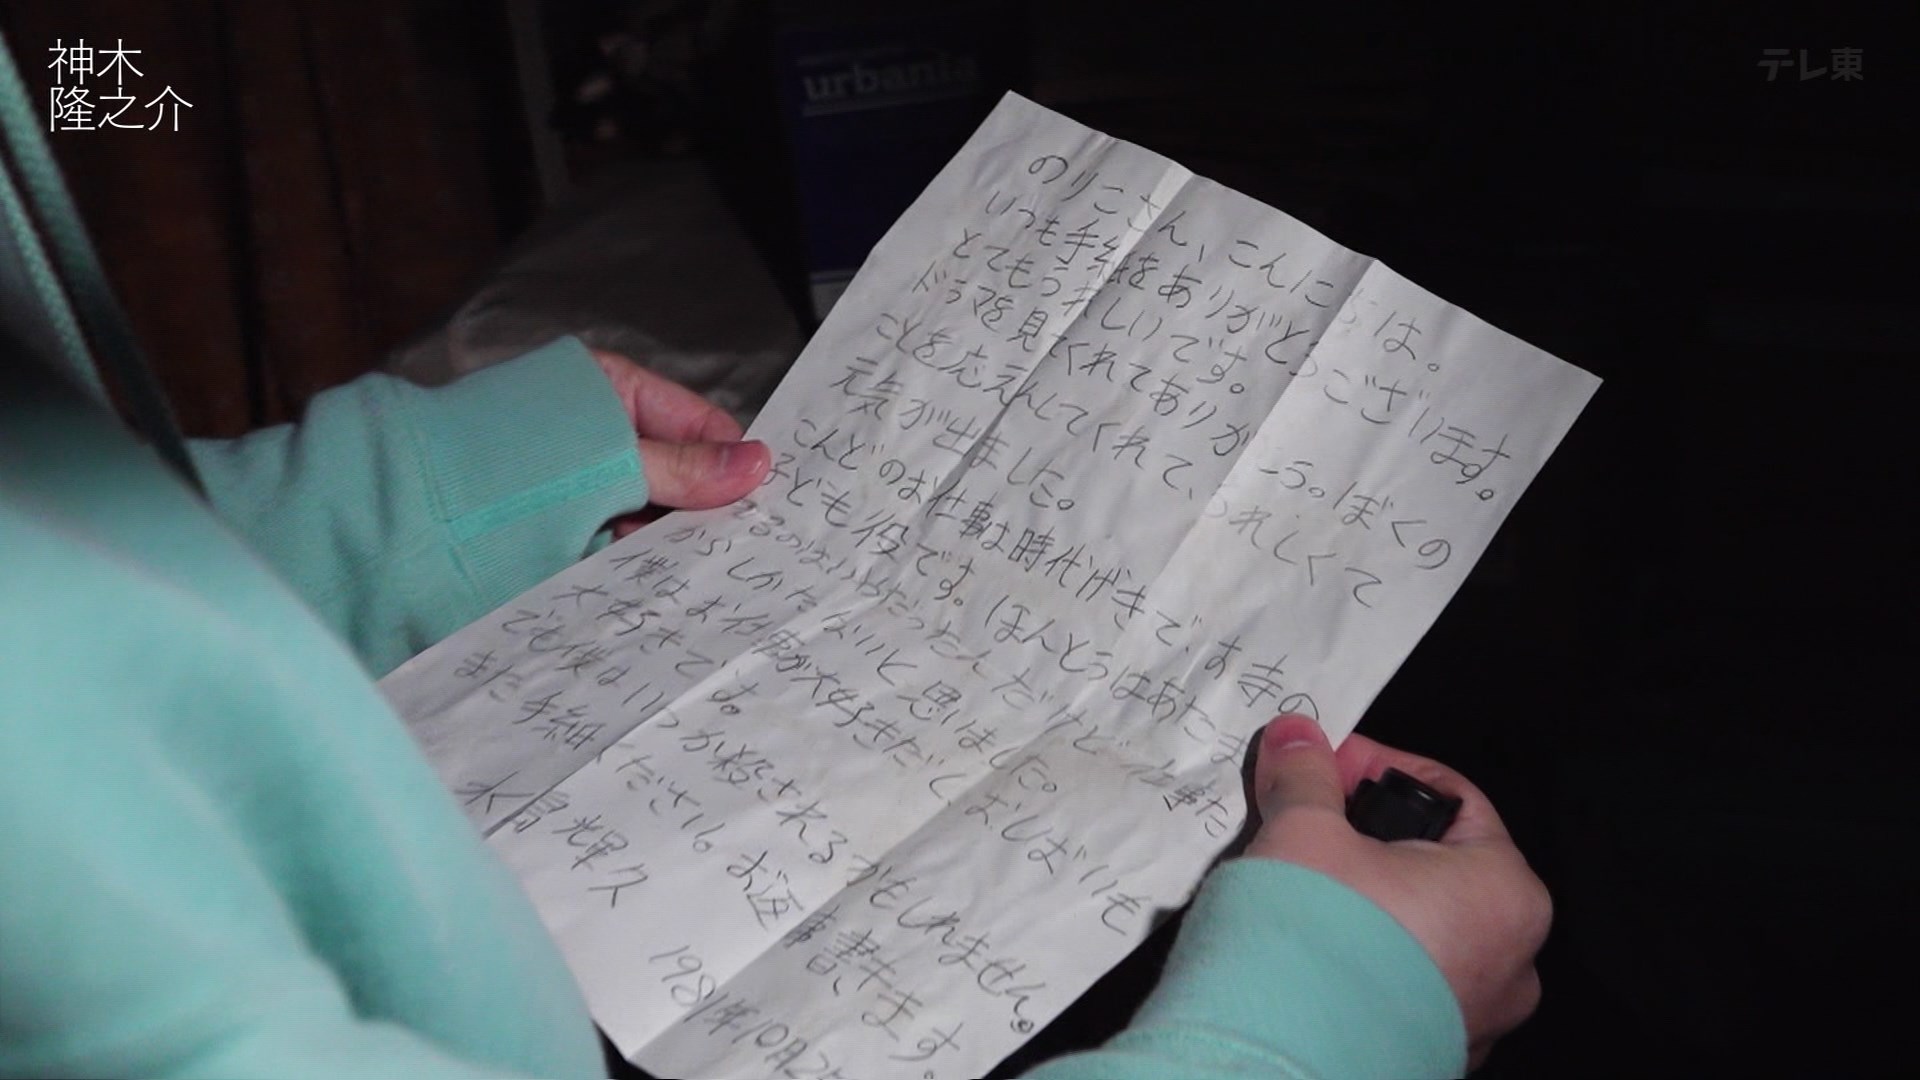 神木
隆之介
テレ東
urbania
のりこさん、こんにちは。
いつも手紙をありがとうございます。
とてもうれしいです。
ドラマを見てくれてありがとう。ぼくの
ことを応えんしてくれて、うれしくて
元気が出ました。
こんどのお仕事は時代げきで、お寺の
子ども役です。ほんとうはあたま
るのはいやだったんだけど仕事だ
からしかたないと思いました。
僕はお仕事が大好きだし、おしばいも
大好きです。
でも僕はいつか殺されるかもしれません。
また手紙ください。お返事書きます。
輝久
1981年10月2